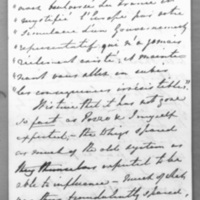 nous boulverser du dernier au
"mystifié" l'Europe par votre
"simulacre d'un Gouvernement
"représentatif qui n'a jamais
"réellement existé", et mainte-
"nant vous allez en subir
"les conséquences irrésistibles."
It is true that it has not gone
so fast as Pozzo & I myself
expected — the things spared
as much of the old system as
they themselves expected to be
able to influence — much of which
was thus providentially spared,